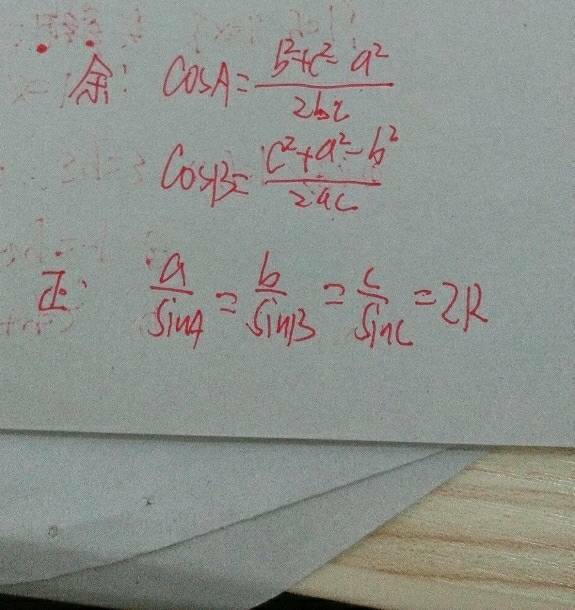 余: cosA = (b²+c²-a²)/(2bc)
cosB = (c²+a²-b²)/(2ac)
正: a/sinA = b/sinB = c/sinC = 2R